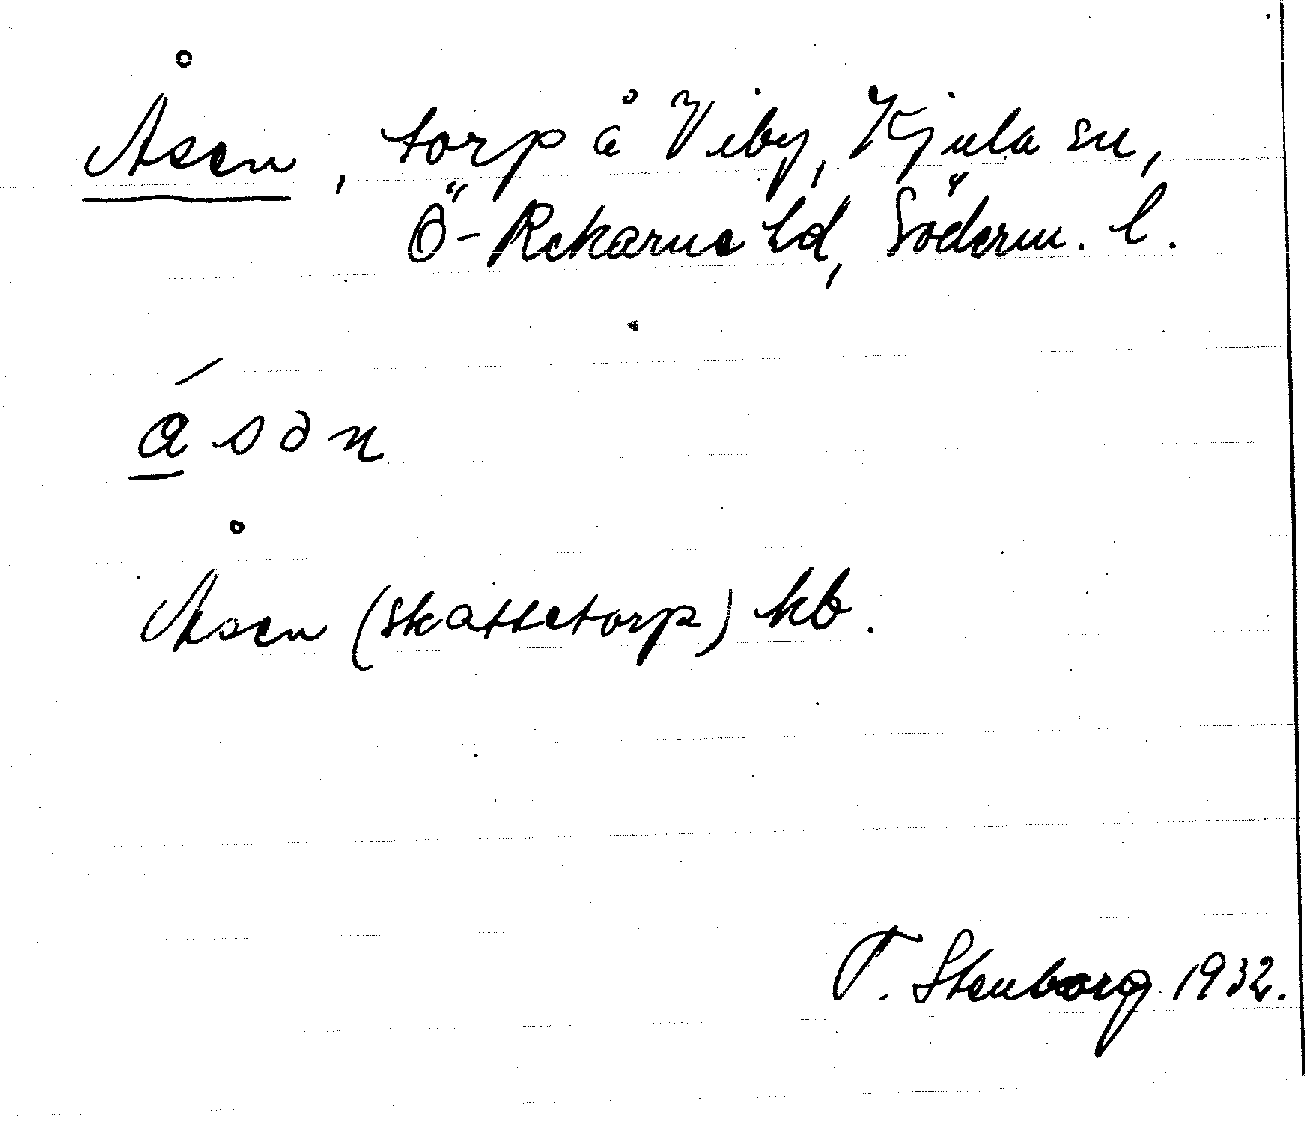 Åsen, torp å Viby, Kjula sn,
Ö-Rekarne hd, Söderm. l.
á̱sən
Åsen (skattetorp) kb.
T. Stenborg 1932.